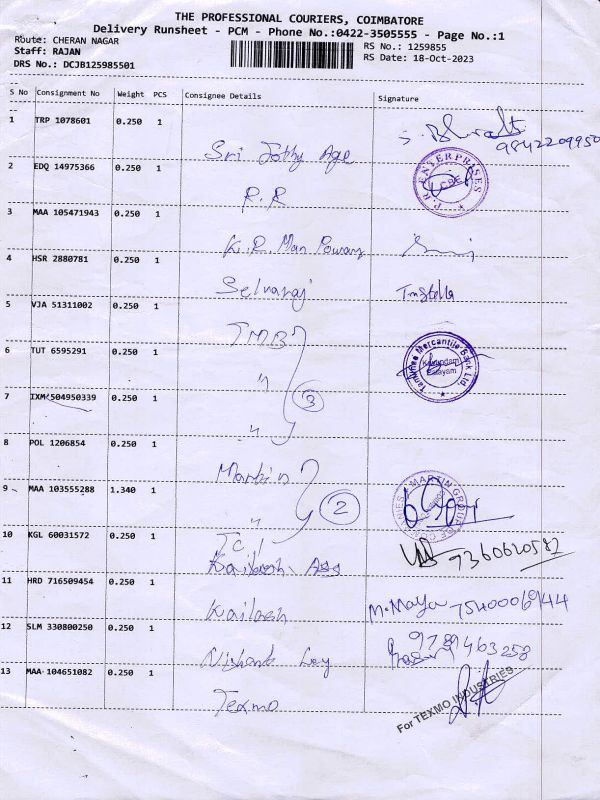 THE PROFESSIONAL COURIERS, COIMBATORE
Delivery Runsheet - PCM - Phone No.:0422-3505555 - Page No.:1
Route: CHERAN NAGAR
RS No.: 1259855
Staff: RAJAN
RS Date: 18-Oct-2023
DRS No.: DCJB125985501
S No Consignment No Weight PCS Consignee Details Signature
1 TRP 1078601 0.250 1
9842209950
Sri
2 EDQ 14975366 0.250 1
P.R ENTERPRISES CBE
R.R
3 MAA 105471943 0.250 1
K.R. Man Power
4 HSR 2880781 0.250 1
Selvaraj
5 VJA 51311002 0.250 1
TMB
6 TUT 6595291 0.250 1
Tamilnad Mercantile Bank Ltd.
"
7 IXM 504950339 0.250 1
3
"
8 POL 1206854 0.250 1
Martin
9 MAA 103555288 1.340 1
MARTIN GROUP OF COMPANIES
" 2
10 KGL 60031572 0.250 1
T.C.
9360620582
Kailash
11 HRD 716509454 0.250 1
Kailash
M.Maya 7540006944
12 SLM 330800250 0.250 1
9789463258
13 MAA 104651082 0.250 1
Texmo
For TEXMO INDUSTRIES